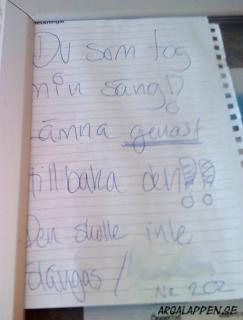 Du som tog
min säng!?
Lämna genast
tillbaka den!!
Den skulle inte
slängas /
Nr 202
ARGALAPPEN.SE